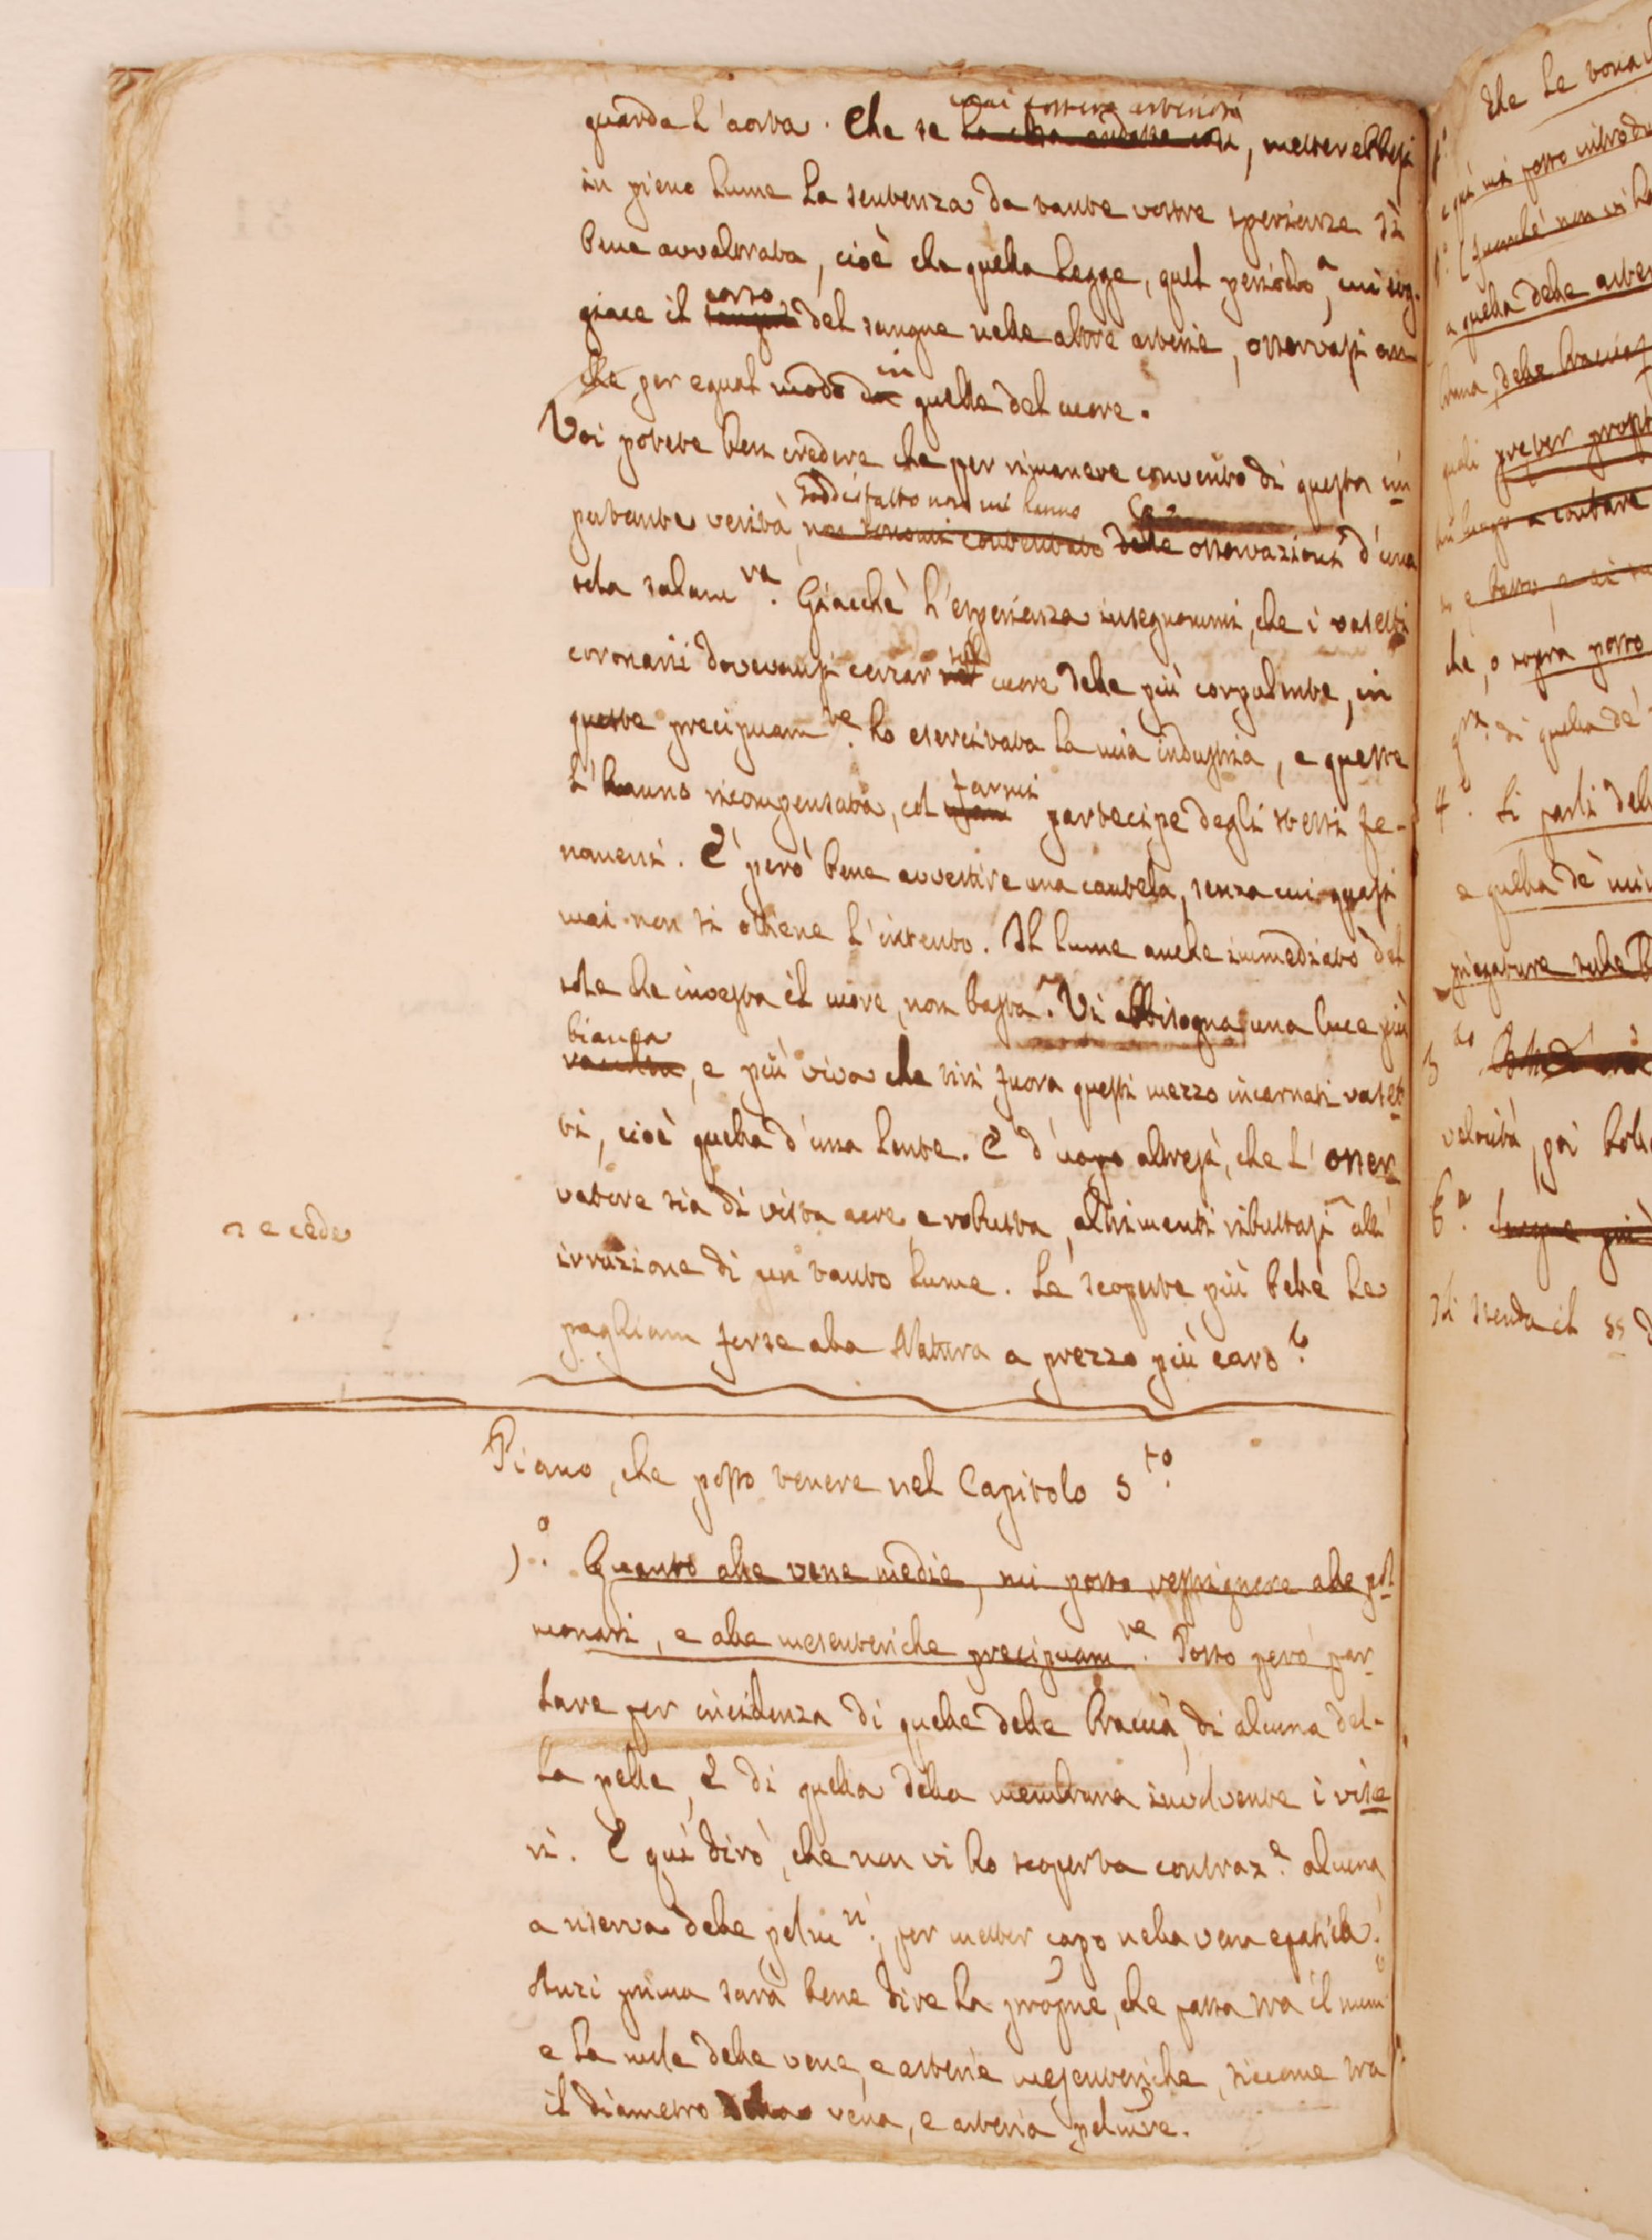 mai fossero arteriosi
guarda l'aorta. Che se la cosa andasse così, metterebbesi
in pieno lume la sentenza da tante vostre sperienze sì
bene avvalorata, cioè che quella legge, quel periodo, a cui sog-
corso
giace il sangue del sangue nelle altre arterie, osservasi an
in
che per egual modo da quelle del cuore.
Voi potete ben credere che per rimanere convinto di questa im
soddisfatto non mi hanno
portante verità, non sonomi contentato delle osservazioni d'una
sola salam.ra Giacchè l'esperienza insegnommi, che i vasetti
sul
coronarii dovevansi cercar nel cuore delle più corpulente, in
queste precipuam.te ho esercitata la mia industria, e queste
farmi
l'hanno ricompensata, col partecipe degli stessi fe-
nomeni. È però bene avvertire una cautela, senza cui quasi
mai non si ottiene l'intento. Il lume anche immediato del
sole che investa il cuore, non basta. Vi abbisogna una luce più
bianca
, e più viva che tiri fuora questi mezzo incarnati vaset
ti, cioè quella d'una lente. È d'uopo altresì, che l'osser
vatore sia di vista acre e robusta, altrimenti ributtasi all'
e cede
irruzione di un tanto lume. Le scoperte più belle le
paghiam forse alla Natura a prezzo più caro?
Piano, che posso tenere nel Capitolo 5.to
1.o Quanto alle vene medie, mi posso restrignere alle pol
monari, e alle mesenteriche precipuam.te Posso però par
lare per incidenza di quelle delle braccia, di alcuna del-
la pelle, e di quella della membrana involvente i visce
ri. E quì dirò, che non vi ho scoperta contraz.e alcuna
a riserva delle polm.ri, per metter capo nella vena epatica.
Anzi prima sarà bene dire la propne, che passa tra il num
e la mole delle vene, e arterie mesenteriche, siccome tra
il diametro della vena, e arteria polmre.
Che le
e quì mi posso introdu
(purchè non vi ho
a quella delle arter
brana, delle braccia,
quali preter propt
a contare
che, o sopra posso
di quella de'
4.o Si parli del
e quella de' mi
piegature sulle
velocità, poi
6.a
Si stenda il §§